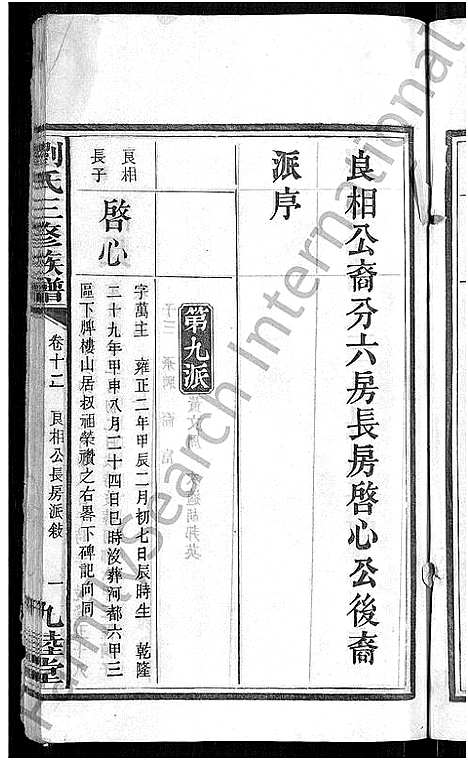 良相公裔分六房長房啓心公後裔
派序
第九派
良相
長子
啓心
字萬主 雍正二年甲辰二月初七日辰時生 乾隆
二十九年甲申八月二十四日巳時沒葬河都六甲三
區下牌樓山居叔祖榮禶之右畧下碑記向同
劉氏三修族譜
卷十二 良相公長房派敘
一
九睦堂
FamilySearch International